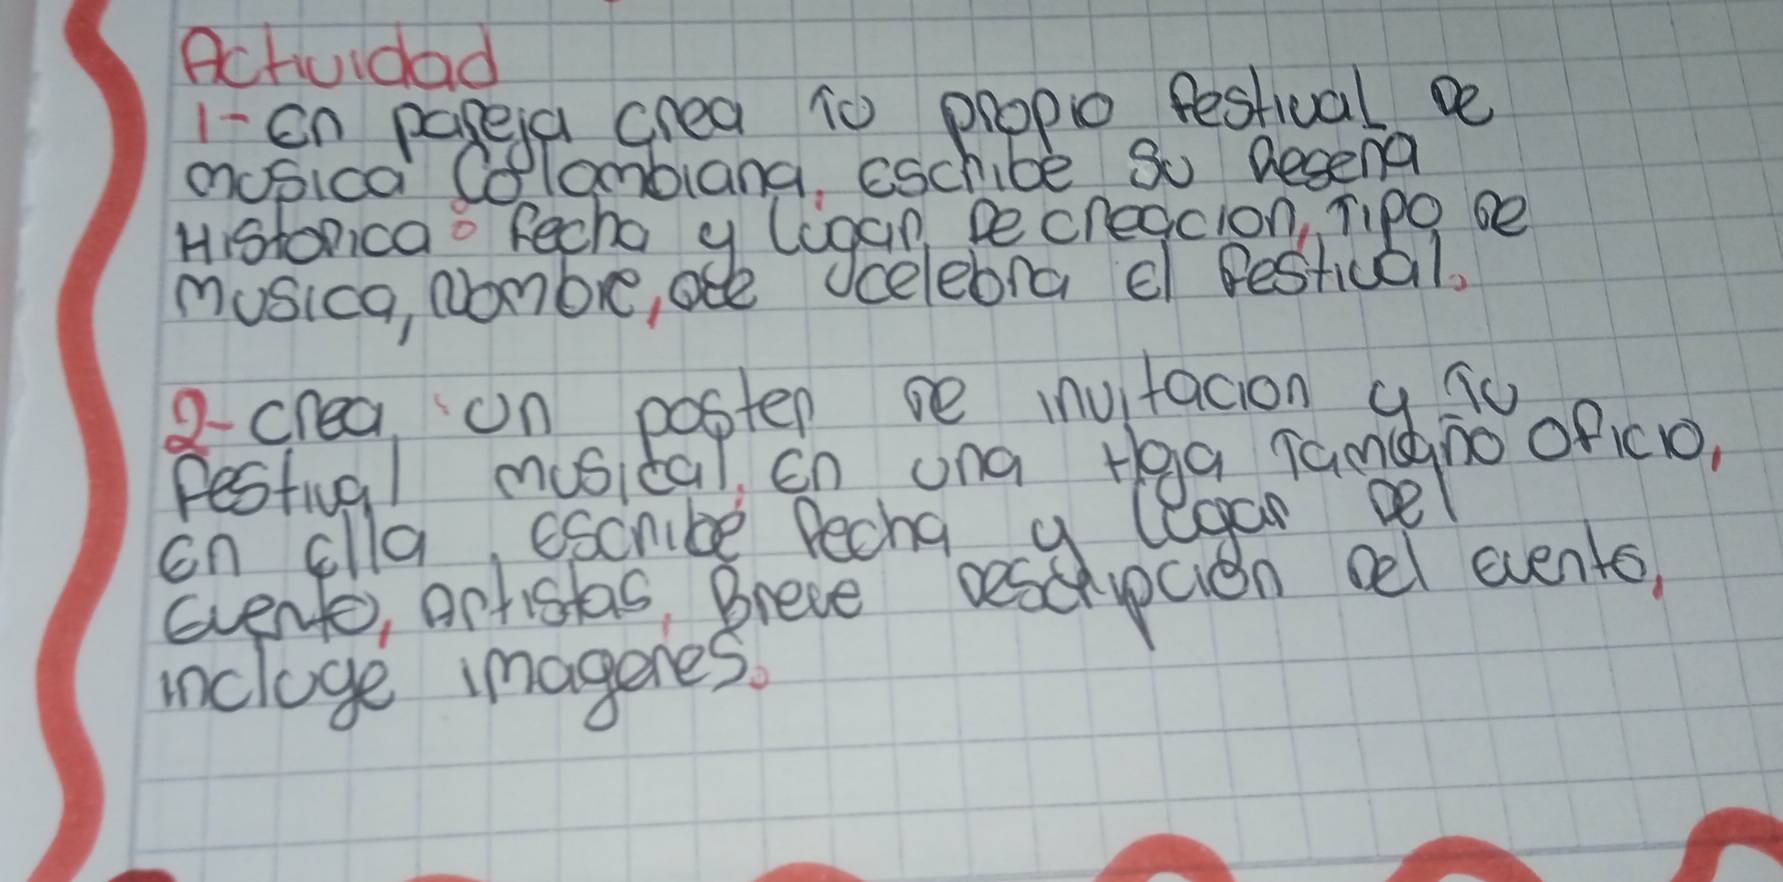 Actividad
1- En pareja crea tu propio festival de
musica Colombiana, escribe su resena
Historica: fecha y lugar de creaccion, Tipo de
musica, Nombre, celebra el festival.
2- crea un poster de invitacion y Tu
festival musical, En una Hoja Tamaño oficio,
En ella, escribe fecha y lugar del
Evento, Artistas, Breve descripción del evento,
incluye imagenes.